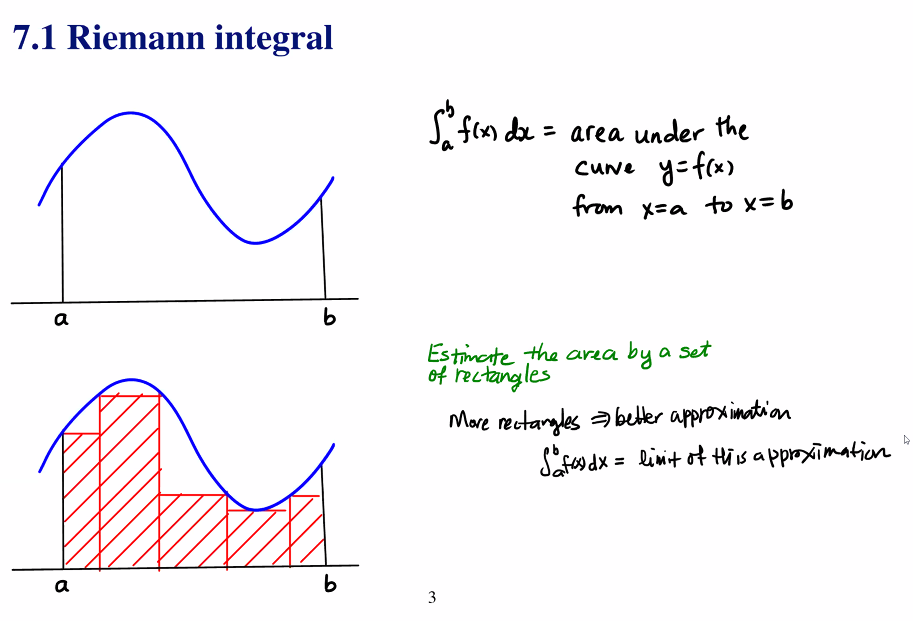 7.1 Riemann integral
∫ₐᵇ f(x) dx = area under the
curve y=f(x)
from x=a to x=b
a b
Estimate the area by a set
of rectangles
More rectangles ⇒ better approximation
∫ₐᵇ f(x) dx = limit of this approximation
a b
3